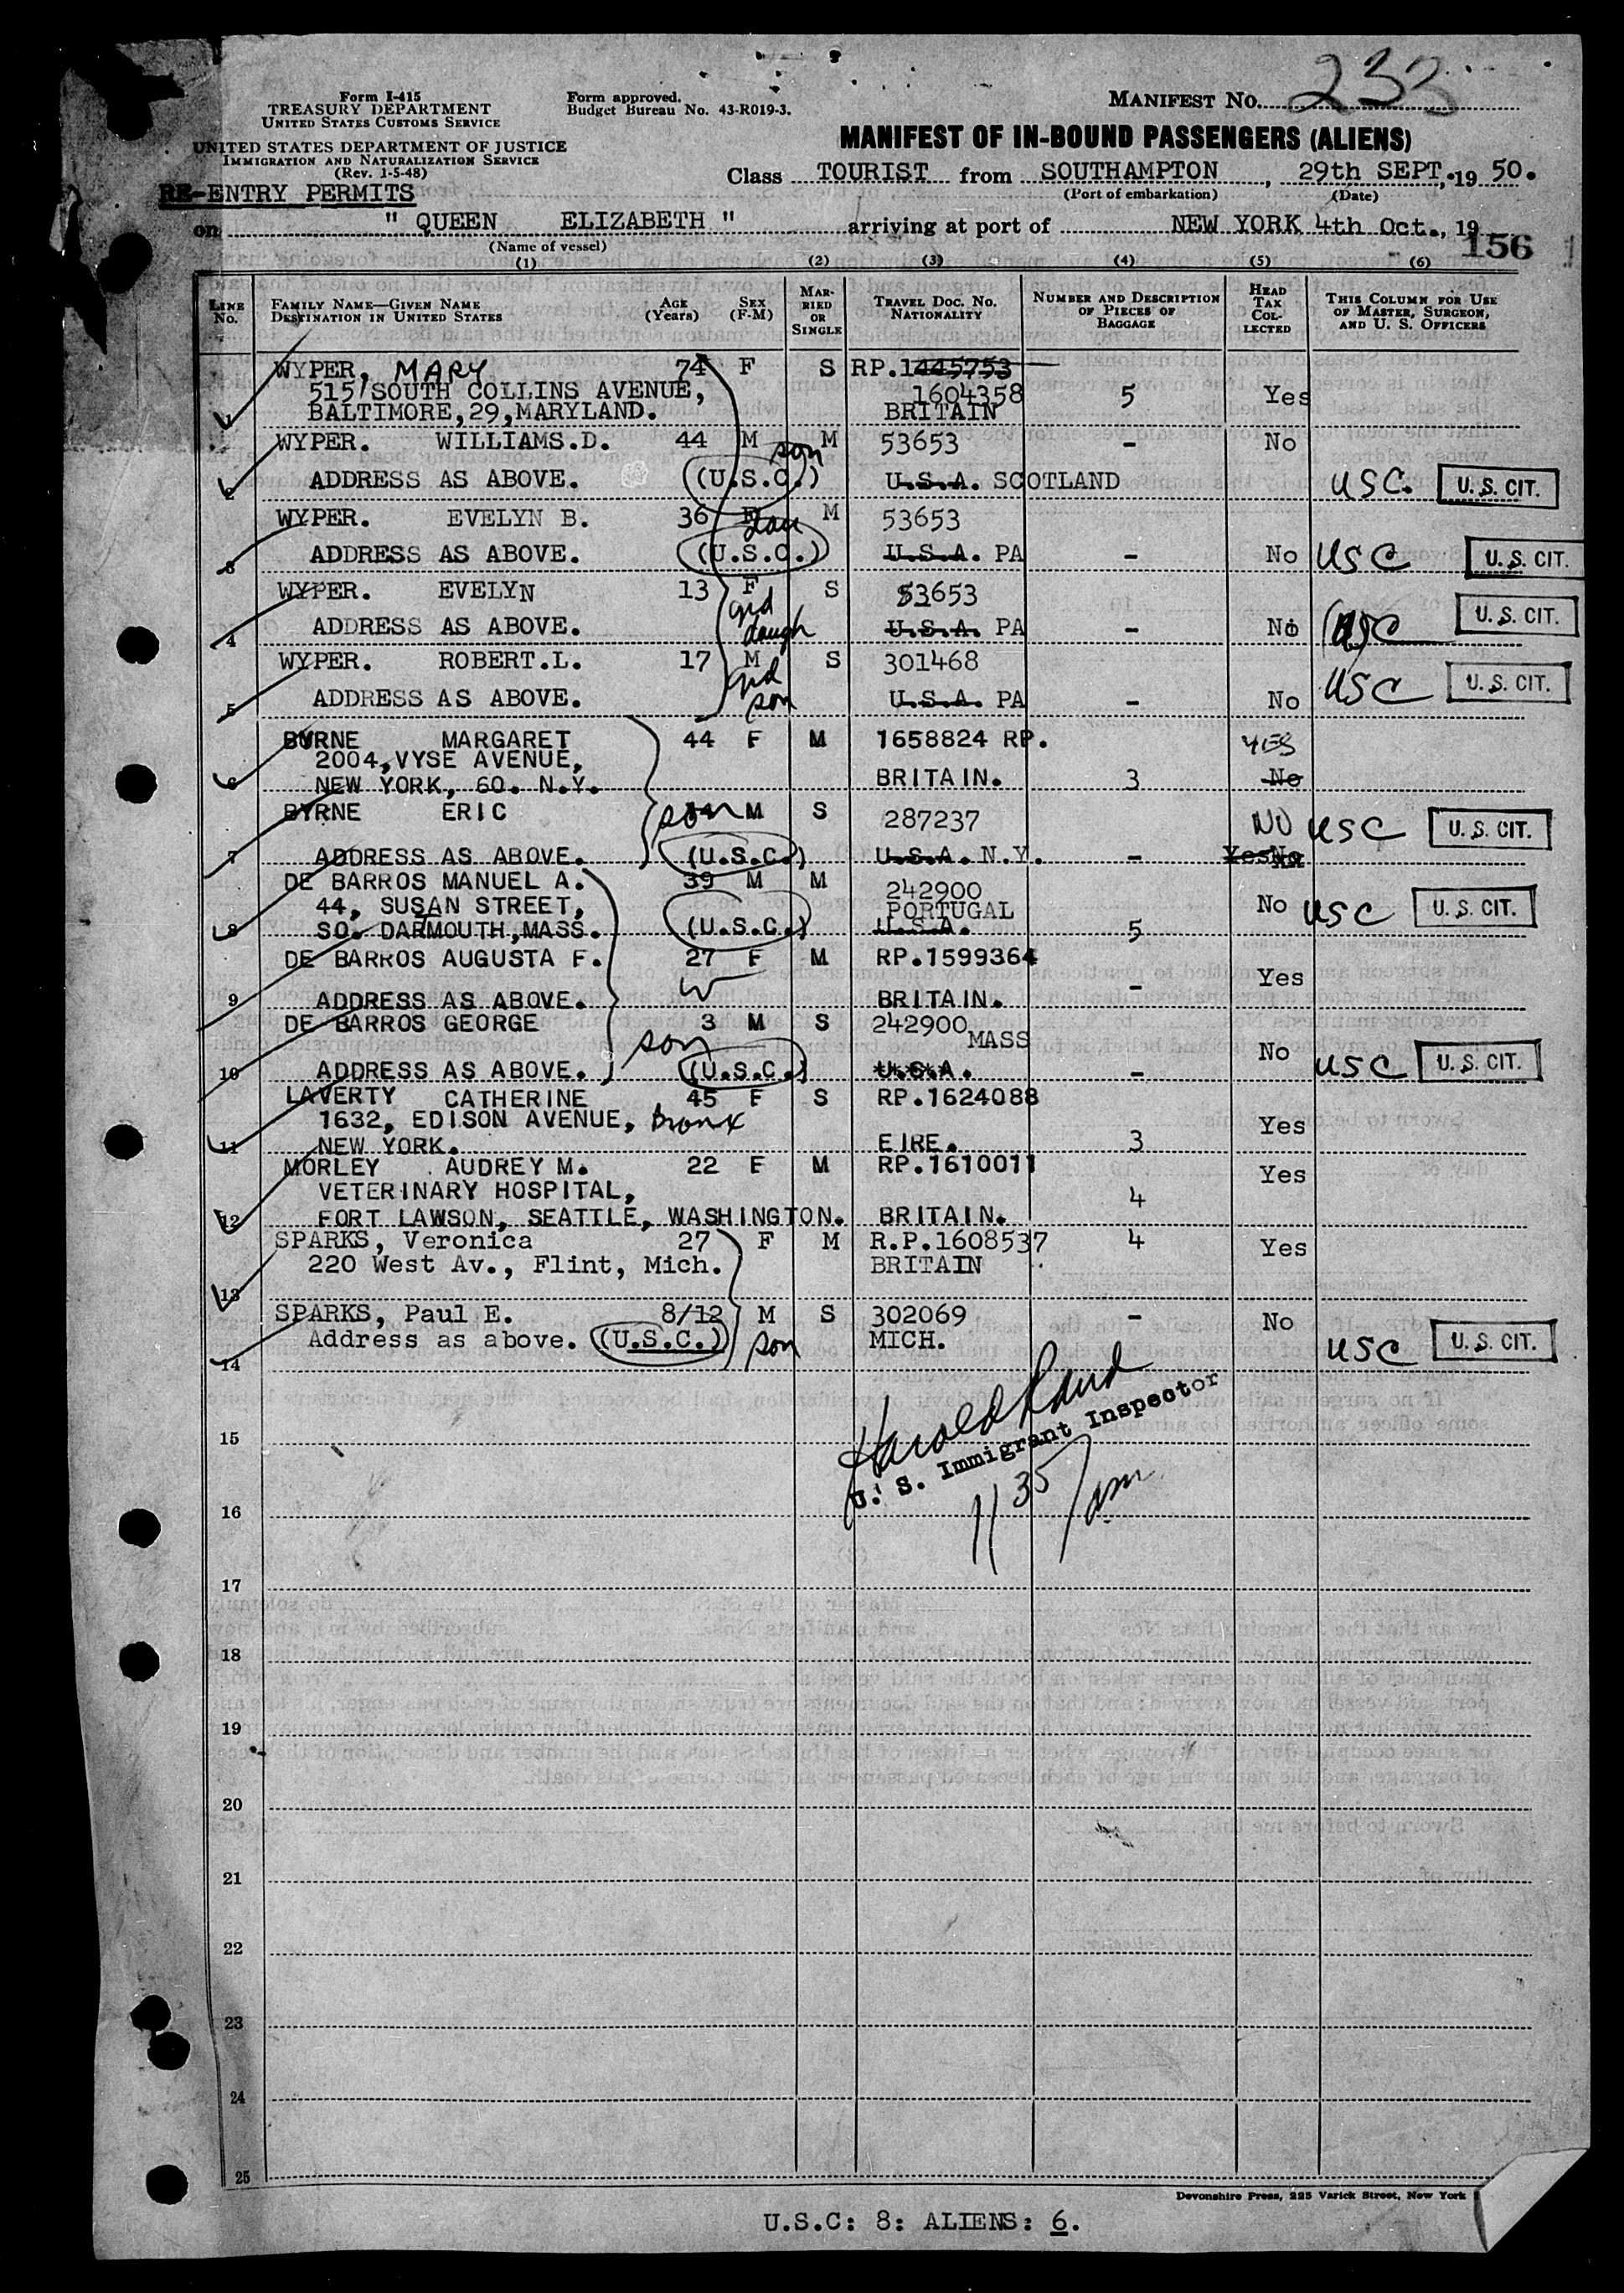 Form I-415
TREASURY DEPARTMENT
UNITED STATES CUSTOMS SERVICE
UNITED STATES DEPARTMENT OF JUSTICE
IMMIGRATION AND NATURALIZATION SERVICE
(Rev. 1-5-48)
RE-ENTRY PERMITS
Form approved.
Budget Bureau No. 43-R019-3.
MANIFEST No. 233
MANIFEST OF IN-BOUND PASSENGERS (ALIENS)
Class TOURIST from SOUTHAMPTON, 29th SEPT, 19 50.
(Port of embarkation) (Date)
on " QUEEN ELIZABETH " arriving at port of NEW YORK 4th Oct., 19
(Name of vessel)
156
(1) (2) (3) (4) (5) (6)
LINE No. FAMILY NAME—GIVEN NAME DESTINATION IN UNITED STATES AGE (Years) SEX (F-M) MARRIED OR SINGLE TRAVEL DOC. NO. NATIONALITY NUMBER AND DESCRIPTION OF PIECES OF BAGGAGE HEAD TAX COLLECTED THIS COLUMN FOR USE OF MASTER, SURGEON, AND U. S. OFFICERS
WYPER, MARY 74 F S RP.1445753
515 SOUTH COLLINS AVENUE, 1604358 5 Yes
1 BALTIMORE,29,MARYLAND. BRITAIN
WYPER. WILLIAMS.D. 44 M son M 53653 - No
2 ADDRESS AS ABOVE. (U.S.C.) U.S.A. SCOTLAND USC. U. S. CIT.
WYPER. EVELYN B. 36 F dau M 53653
3 ADDRESS AS ABOVE. (U.S.C.) U.S.A. PA - No USC U. S. CIT.
WYPER. EVELYN 13 F S 53653
4 ADDRESS AS ABOVE. grd daugh U.S.A. PA - No USC U. S. CIT.
WYPER. ROBERT.L. 17 M S 301468
5 ADDRESS AS ABOVE. grd son U.S.A. PA - No USC U. S. CIT.
BYRNE MARGARET 44 F M 1658824 RP. YES
2004,VYSE AVENUE,
6 NEW YORK, 60. N.Y. BRITAIN. 3 No
BYRNE ERIC son M S 287237 NO USC U. S. CIT.
7 ADDRESS AS ABOVE. (U.S.C.) U.S.A. N.Y. - Yes No
DE BARROS MANUEL A. 39 M M 242900
44, SUSAN STREET, PORTUGAL No USC U. S. CIT.
8 SO. DARTMOUTH,MASS. (U.S.C.) U.S.A. 5
DE BARROS AUGUSTA F. 27 F M RP.1599364 Yes
9 ADDRESS AS ABOVE. W BRITAIN. -
DE BARROS GEORGE 3 M S 242900 MASS
10 ADDRESS AS ABOVE. son (U.S.C.) U.S.A. - No USC U. S. CIT.
LAVERTY CATHERINE 45 F S RP.1624088
1632, EDISON AVENUE, Bronx Yes
11 NEW YORK. EIRE. 3
MORLEY AUDREY M. 22 F M RP.1610011 Yes
VETERINARY HOSPITAL, 4
12 FORT LAWSON, SEATTLE, WASHINGTON. BRITAIN.
SPARKS, Veronica 27 F M R.P.1608537 4 Yes
220 West Av., Flint, Mich. BRITAIN
13
SPARKS, Paul E. 8/12 M S 302069 - No
Address as above. (U.S.C.) son MICH. USC U. S. CIT.
14
Harold Rand
U. S. Immigrant Inspector
15
11 35/am
16
17
18
19
20
21
22
23
24
25
Devonshire Press, 225 Varick Street, New York
U.S.C: 8: ALIENS: 6.